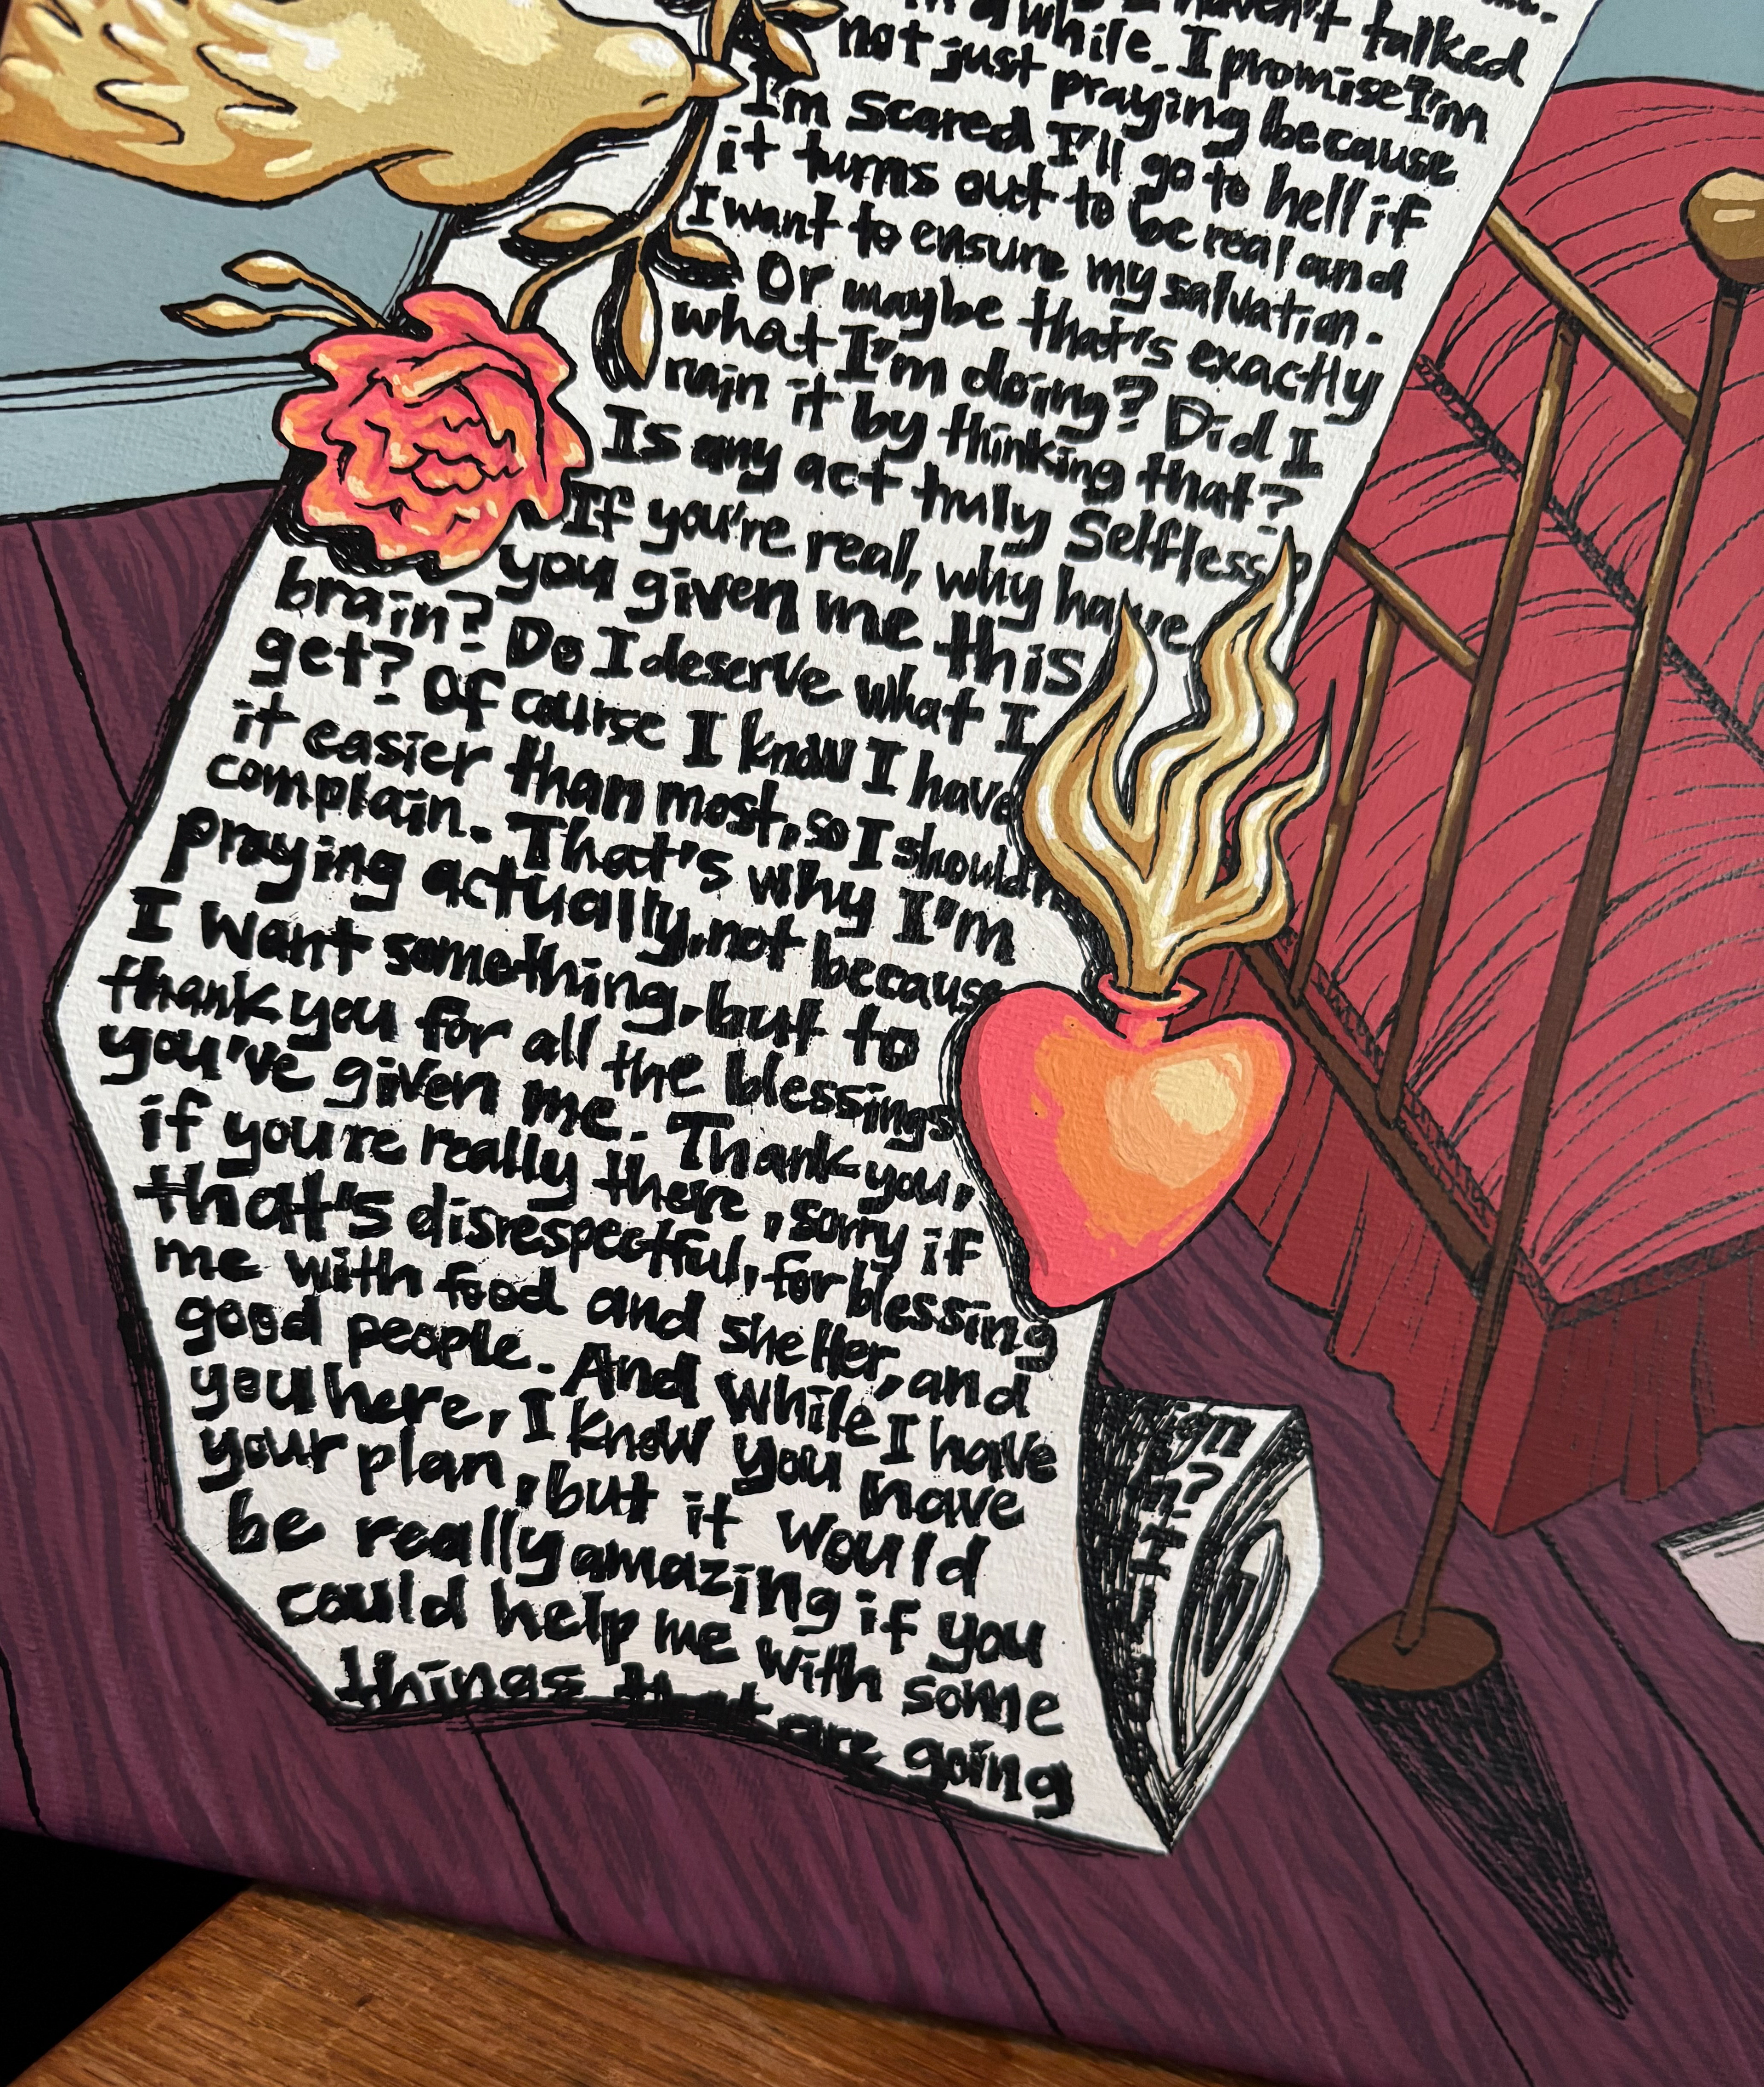 I haven't talked
in a while. I promise I'm
not just praying because
I'm scared I'll go to hell if
it turns out to be real and
I want to ensure my salvation.
Or maybe that's exactly
what I'm doing? Did I
ruin it by thinking that?
Is any act truly selfless?
If you're real, why have
you given me this
brain? Do I deserve what I
get? Of course I know I have
it easier than most, so I shouldn
complain. That's why I'm
praying actually, not because
I want something, but to
thank you for all the blessings
you've given me. Thank you,
if you're really there, sorry if
that's disrespectful, for blessing
me with food and shelter, and
good people. And while I have
you here, I know you have
your plan, but it would
be really amazing if you
could help me with some
things that are going